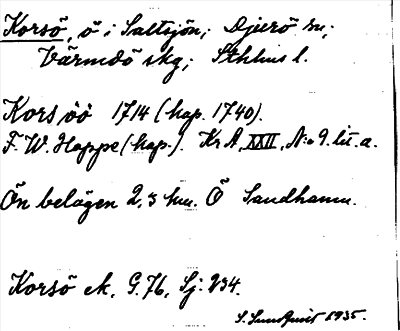 Korsö, ö i Saltsjön; Djurö sn;
Värmdö skg; Sthlms l.
Kors öö 1714 (kap. 1740).
F. W. Hoppe (kap.). Kr A, XXII, N:o 9. lit. a.
Ön belägen 2,3 km. Ö Sandhamn.
Korsö ek. G. 76, Sj: 234.
S. Sundquist 1935.